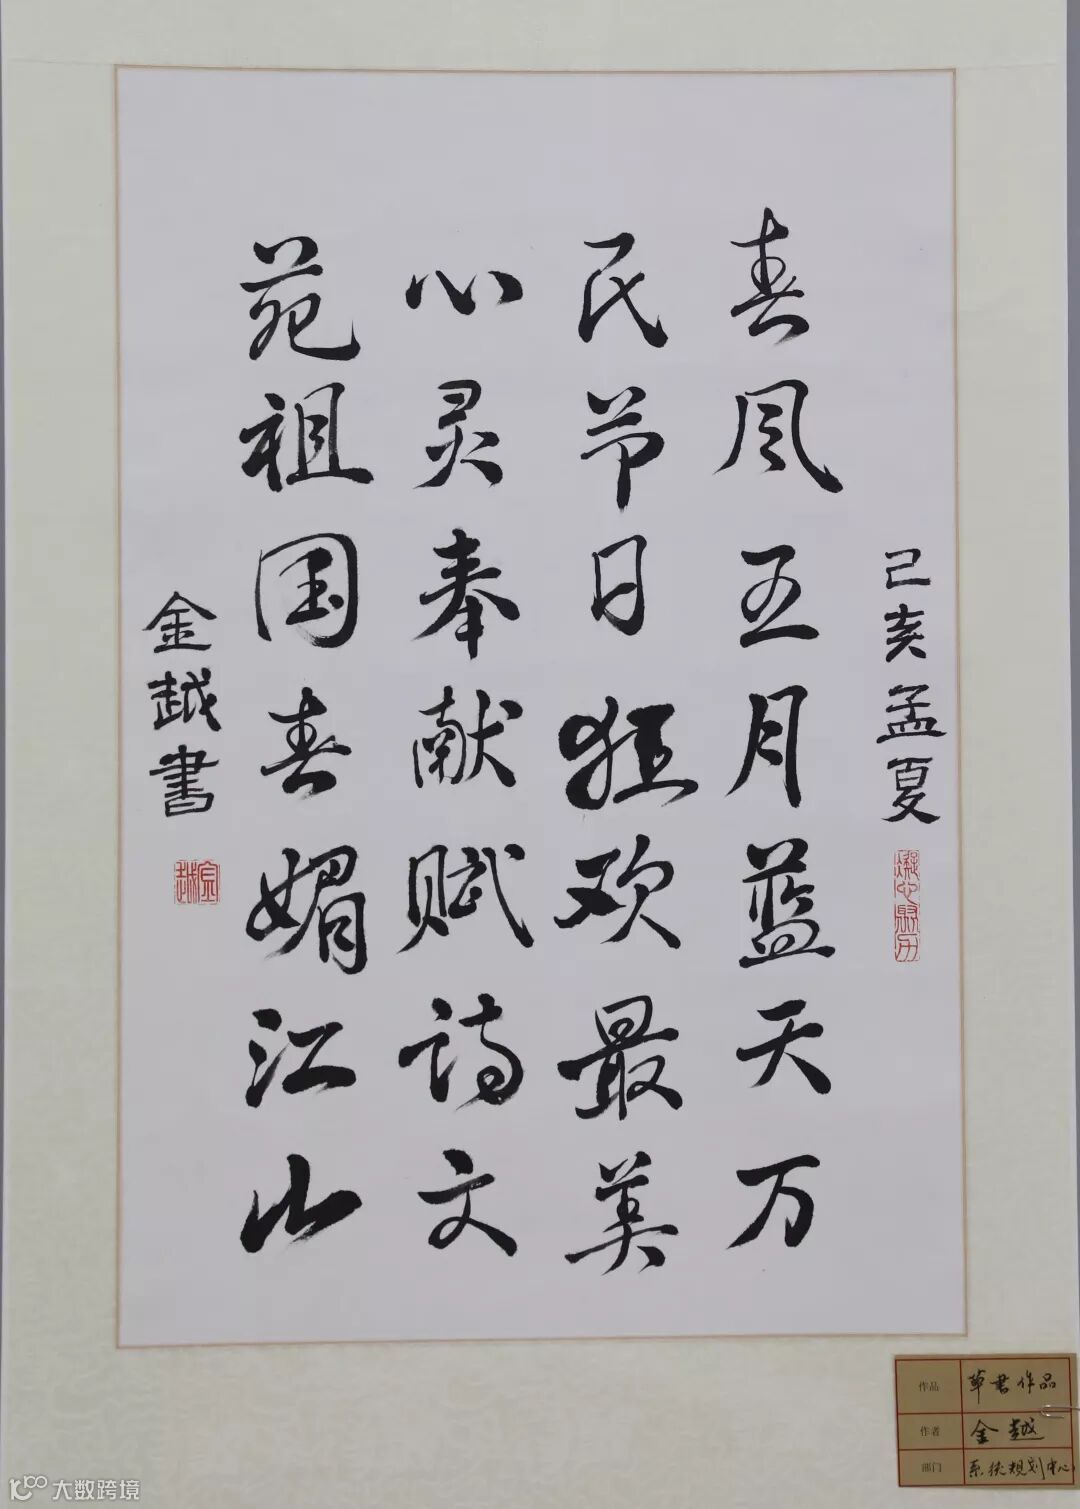 己亥孟夏
春风五月蓝天万
民节日狂欢最美
心灵奉献赋诗文
苑祖国春媚江山
金越书
金越
作品 草书作品
作者 金越
部门 系统规划中心
大数跨境